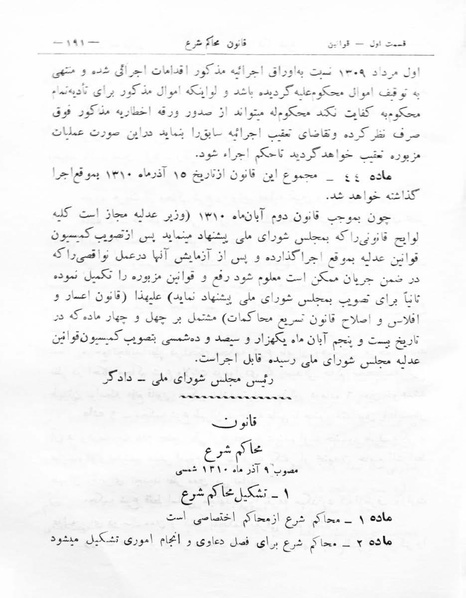 قسمت اول — قوانین قانون محاکم شرع — ۱۹۱ —
اول مرداد ۱۳۰۹ نسبت به‌اوراق اجرائیه مذکور اقدامات اجرائی شده و منتهی
به توقیف اموال محکوم‌علیه گردیده باشد و لواینکه اموال مذکور برای تأدیه‌تمام
محکوم‌به کفایت نکند محکوم‌له میتواند از صدور ورقه اخطاریه مذکور فوق
صرف نظر کرده وتقاضای تعقیب اجرائیه سابق‌را بنماید دراین صورت عملیات
مزبوره تعقیب خواهدگردید تاحکم اجراء شود.
ماده ٤٤ — مجموع این قانون ازتاریخ ۱۵ آذرماه ۱۳۱۰ بموقع‌اجرا
گذاشته خواهد شد.
چون بموجب قانون دوم آبان‌ماه ۱۳۱۰ (وزیر عدلیه مجاز است کلیه
لوایح قانونی‌راکه بمجلس شورای ملی پیشنهاد مینماید پس ازتصویب‌کمیسیون
قوانین عدلیه بموقع اجراگذارده و پس از آزمایش آنها درعمل نواقصی‌راکه
در ضمن جریان ممکن است معلوم شود رفع و قوانین مزبوره را تکمیل نموده
ثانیاً برای تصویب بمجلس شورای ملی پیشنهاد نماید) علیهذا (قانون اعسار و
افلاس و اصلاح قانون تسریع محاکمات) مشتمل بر چهل و چهار ماده‌که در
تاریخ بیست و پنجم آبان ماه یکهزار و سیصد و ده‌شمسی بتصویب‌کمیسیون‌قوانین
عدلیه مجلس شورای ملی رسیده قابل اجراست.
رئیس مجلس شورای ملی — دادگر
قانون
محاکم شرع
مصوب ۹ آذر ماه ۱۳۱۰ شمسی
۱ — تشکیل محاکم شرع
ماده ۱ — محاکم شرع ازمحاکم اختصاصی است
ماده ۲ — محاکم شرع برای فصل دعاوی و انجام اموری تشکیل میشود